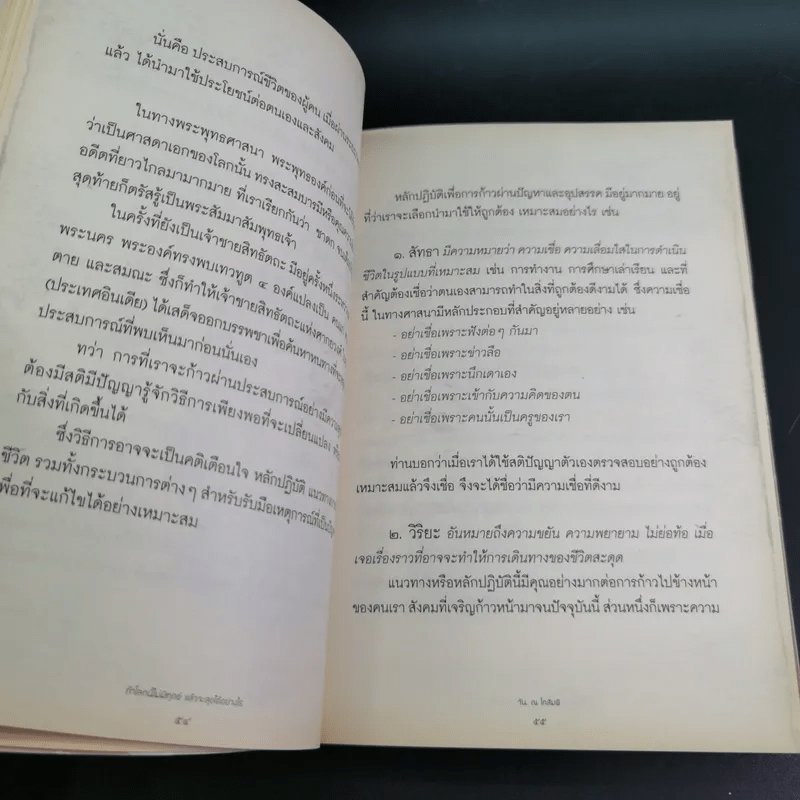 นั่นคือ ประสบการณ์ชีวิตของผู้คน เมื่อผ่าน
แล้ว ได้นำมาใช้ประโยชน์ต่อตนเองและสังคม
ในทางพระพุทธศาสนา พระพุทธองค์ก่อนที่จะ
ว่าเป็นศาสดาเอกของโลกนั้น ทรงสะสมบารมีหรือคุณความ
อดีตที่ยาวไกลมามากมาย ที่เราเรียกกันว่า ชาดก จน
สุดท้ายก็ตรัสรู้เป็นพระสัมมาสัมพุทธเจ้า
ในครั้งที่ยังเป็นเจ้าชายสิทธัตถะ มีอยู่ครั้งหนึ่ง
พระนคร พระองค์ทรงพบเทวทูต ๔ องค์แปลงเป็น คน
ตาย และสมณะ ซึ่งก็ทำให้เจ้าชายสิทธัตถะแห่งศากยวงศ์
(ประเทศอินเดีย) ได้เสด็จออกบรรพชาเพื่อค้นหาหนทาง
ประสบการณ์ที่พบเห็นมาก่อนนั่นเอง
ทว่า การที่เราจะก้าวผ่านประสบการณ์อย่างมีความ
ต้องมีสติมีปัญญารู้จักวิธีการเพียงพอที่จะเปลี่ยนแปลง
กับสิ่งที่เกิดขึ้นได้
ซึ่งวิธีการอาจจะเป็นคติเตือนใจ หลักปฏิบัติ แนวทาง
ชีวิต รวมทั้งกระบวนการต่างๆ สำหรับรับมือเหตุการณ์ที่เป็น
พื่อที่จะแก้ไขได้อย่างเหมาะสม
ถ้าโลกนี้ไม่มีทุกข์ แล้วจะสุขได้อย่างไร
๕๔
หลักปฏิบัติเพื่อการก้าวผ่านปัญหาและอุปสรรค มีอยู่มากมาย อยู่
ที่ว่าเราจะเลือกนำมาใช้ให้ถูกต้อง เหมาะสมอย่างไร เช่น
๑. สัทธา มีความหมายว่า ความเชื่อ ความเลื่อมใสในการดำเนิน
ชีวิตในรูปแบบที่เหมาะสม เช่น การทำงาน การศึกษาเล่าเรียน และที่
สำคัญต้องเชื่อว่าตนเองสามารถทำในสิ่งที่ถูกต้องดีงามได้ ซึ่งความเชื่อ
นี้ ในทางศาสนามีหลักประกอบที่สำคัญอยู่หลายอย่าง เช่น
- อย่าเชื่อเพราะฟังต่อๆ กันมา
- อย่าเชื่อเพราะข่าวลือ
- อย่าเชื่อเพราะนึกเดาเอง
- อย่าเชื่อเพราะเข้ากับความคิดของตน
- อย่าเชื่อเพราะคนนั้นเป็นครูของเรา
ท่านบอกว่าเมื่อเราได้ใช้สติปัญญาตัวเองตรวจสอบอย่างถูกต้อง
เหมาะสมแล้วจึงเชื่อ จึงจะได้ชื่อว่ามีความเชื่อที่ดีงาม
๒. วิริยะ อันหมายถึงความขยัน ความพยายาม ไม่ย่อท้อ เมื่อ
เจอเรื่องราวที่อาจจะทำให้การเดินทางของชีวิตสะดุด
แนวทางหรือหลักปฏิบัตินี้มีคุณอย่างมากต่อการก้าวไปข้างหน้า
ของคนเรา สังคมที่เจริญก้าวหน้ามาจนปัจจุบันนี้ ส่วนหนึ่งก็เพราะความ
วัน. ณ โกสัมพี
๕๕